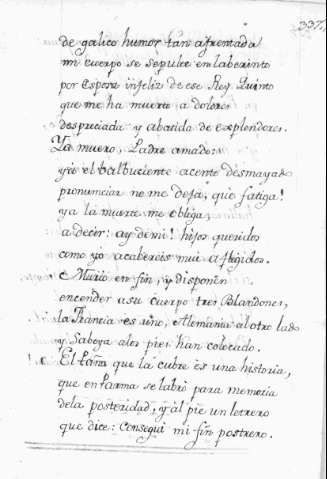 337,
de galico humor tan afrentada
mi cuerpo se sepulte en laberinto
por Espora infeliz de ese Rey Quinto
que me ha muerto a dolores
despreciada y abatida de explendores.
Ya muero, Padre amado:
que el balbuciente acento desmayado
pronunciar no me deja, que fatiga!
ya la muerte me obliga,
a decir: ay de mi! hijos queridos
como yo acabereis mui aflijidos.
Murió en fin, y disponen
encender a su cuerpo tres Blandones,
la Francia es uno, Alemania al otro lado
y Saboya a los pies han colocado.
El paño que la cubre es una historia,
que en Parma se labró para memoria
dela posteridad, y al pie un letrero
que dice: Consegui mi fin postrero.